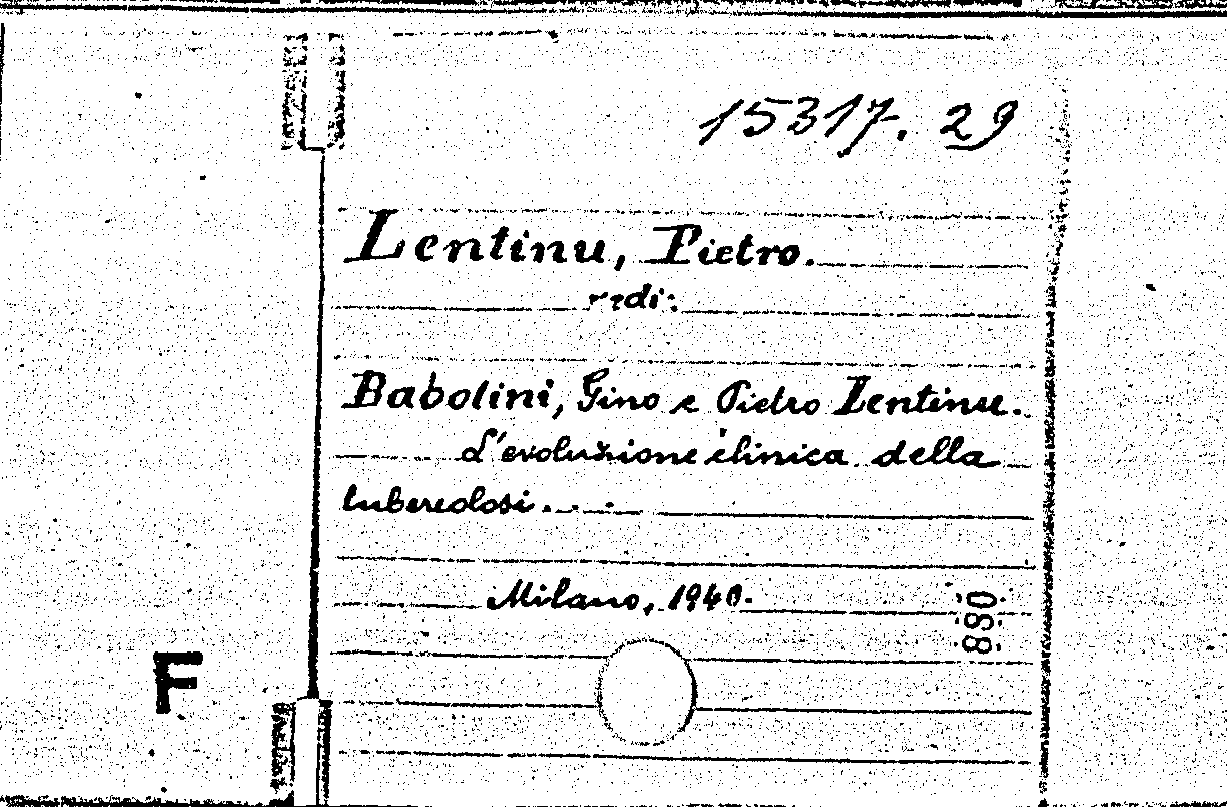 15317. 29
Lentinu, Pietro.
vedi:
Babolini, Gino e Pietro Lentinu.
L'evoluzione clinica della
tubercolosi....
Milano, 1940.
880
F